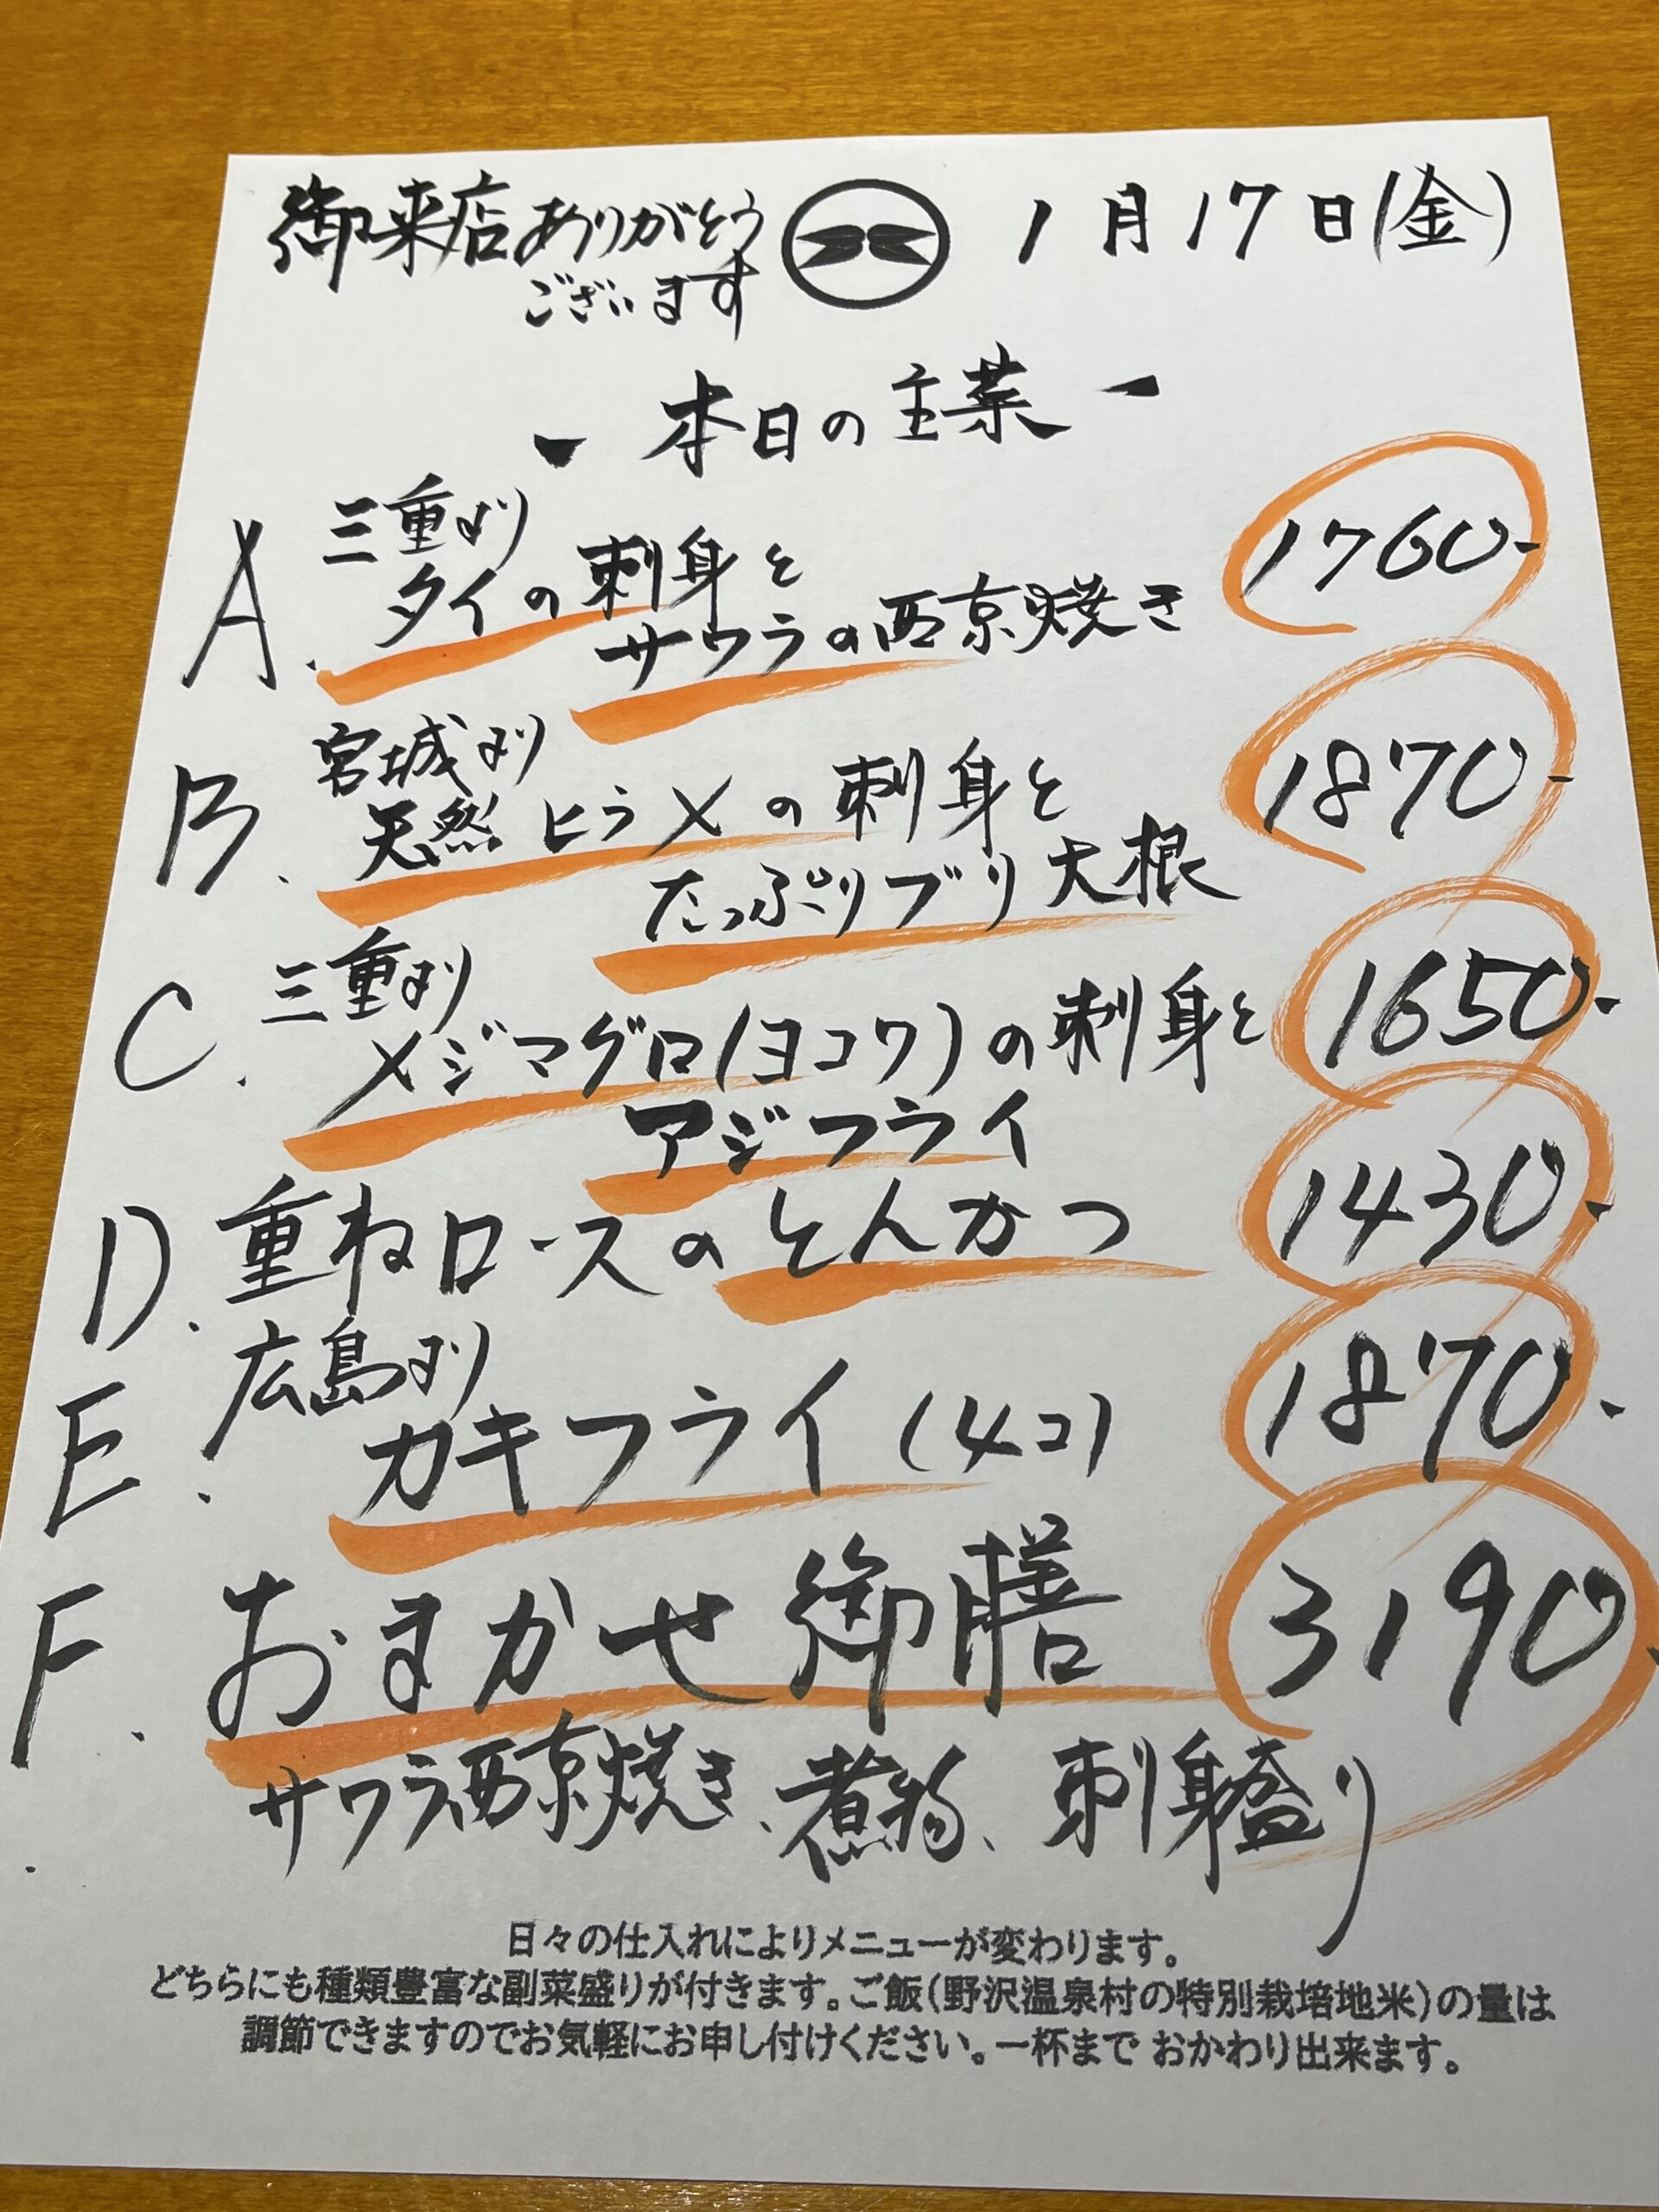 御来店ありがとう
ございます
1月17日(金)
- 本日の主菜 -
A. 三重より
タイの刺身と
サワラの西京焼き
1760-
B. 宮城より
天然ヒラメの刺身と
たっぷりブリ大根
1870-
C. 三重より
メジマグロ(ヨコワ)の刺身と
アジフライ
1650-
D. 重ねロースのとんかつ
1430-
E. 広島より
カキフライ(4コ)
1870-
F. おまかせ御膳
3190-
サワラ西京焼き、煮物、刺身盛り
日々の仕入れによりメニューが変わります。
どちらにも種類豊富な副菜盛りが付きます。ご飯(野沢温泉村の特別栽培地米)の量は
調節できますのでお気軽にお申し付けください。一杯まで おかわり出来ます。